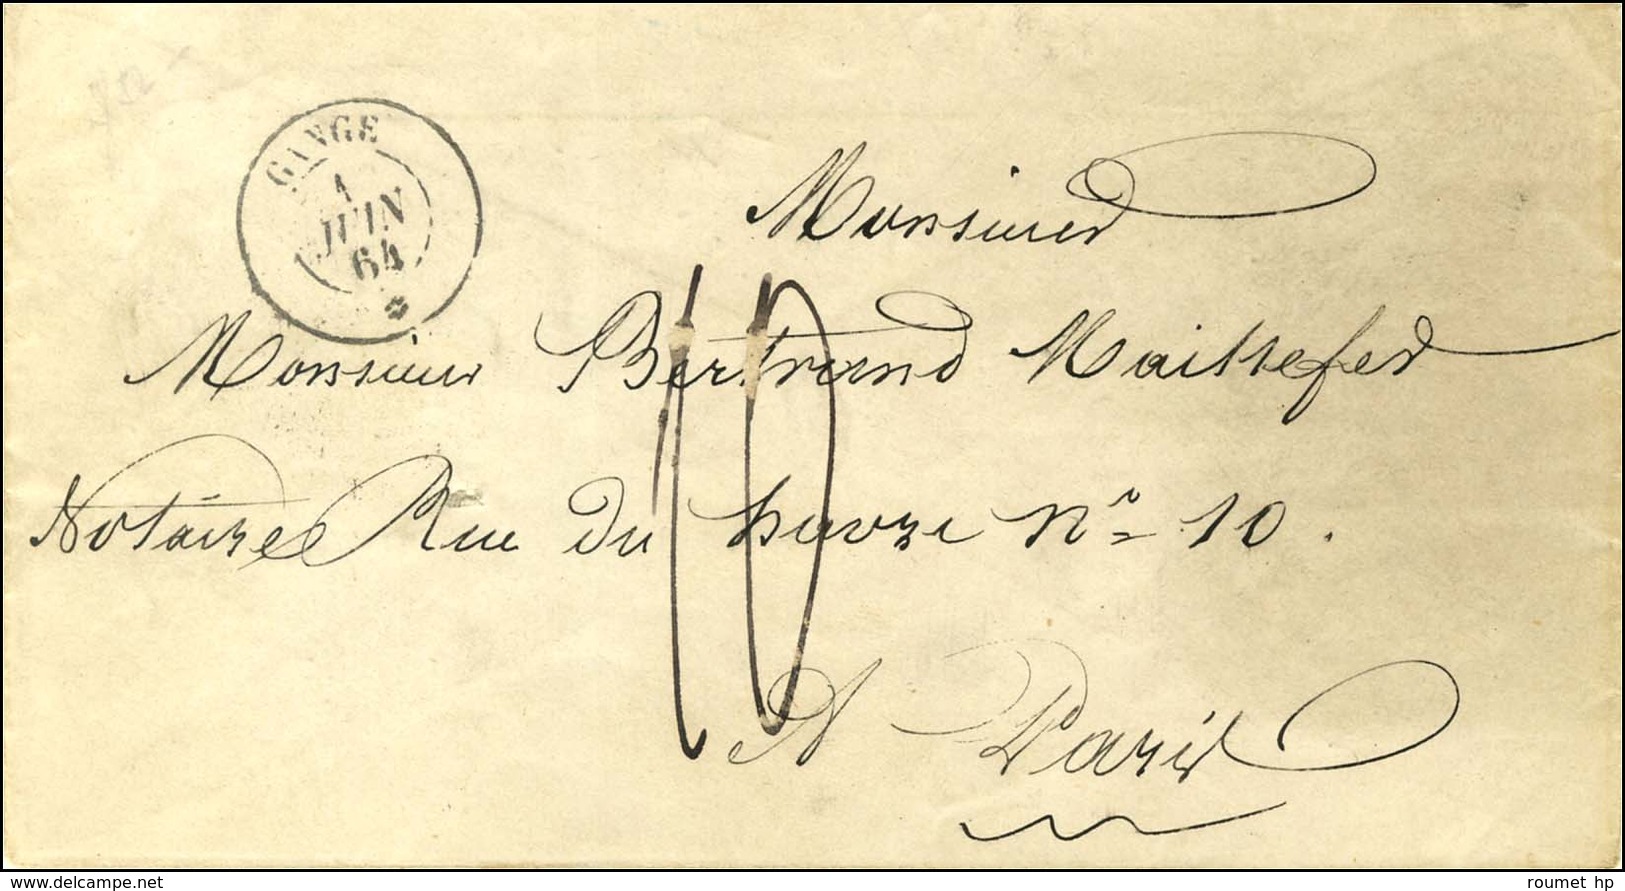 GANGE
1
JUIN
64
Monsieur
Monsieur Bertrand Maissefer
Notaire Rue du havre N° 10.
10
A Paris
www.delcampe.net
roumet hp